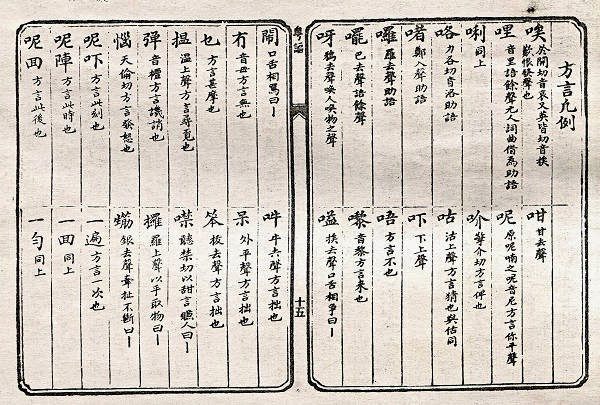 方言凡例
唉 於開切音哀又英皆切音挨歎恨發聲也
咁 甘去聲
哩 音里語餘聲凡人詞曲借為助語
呢 原呢喃之呢音尼方言你平聲
唎 同上
吤 介切方言件也
咯 力各切音洛助語
咕 沽上聲方言猜也與估同
啫 鄭入聲助語
吓 下上聲
囉 羅去聲助語
唔 方言不也
罷 巴去聲語餘聲
嚟 音黎方言來也
呀 鴉去聲喚人喚物之聲
嗌 挨去聲口舌相爭曰丨
粵謳
十五
鬧 口舌相罵曰丨
吽 牛去聲方言拙也
冇 音毋方言無也
呆 外平聲方言拙也
乜 方言甚麽也
笨 板去聲方言拙也
揾 溫上聲方言尋覓也
噤 禁切以甜言賺人曰丨
彈 音檀方言譏誚也
攞 羅上聲以手取物曰丨
惱 切方言發怒也
銀去聲牽扯不斷曰丨
呢吓 方言此刻也
一遍 方言一次也
呢陣 方言此時也
一囬 同上
呢囬 方言此後也
一勻 同上